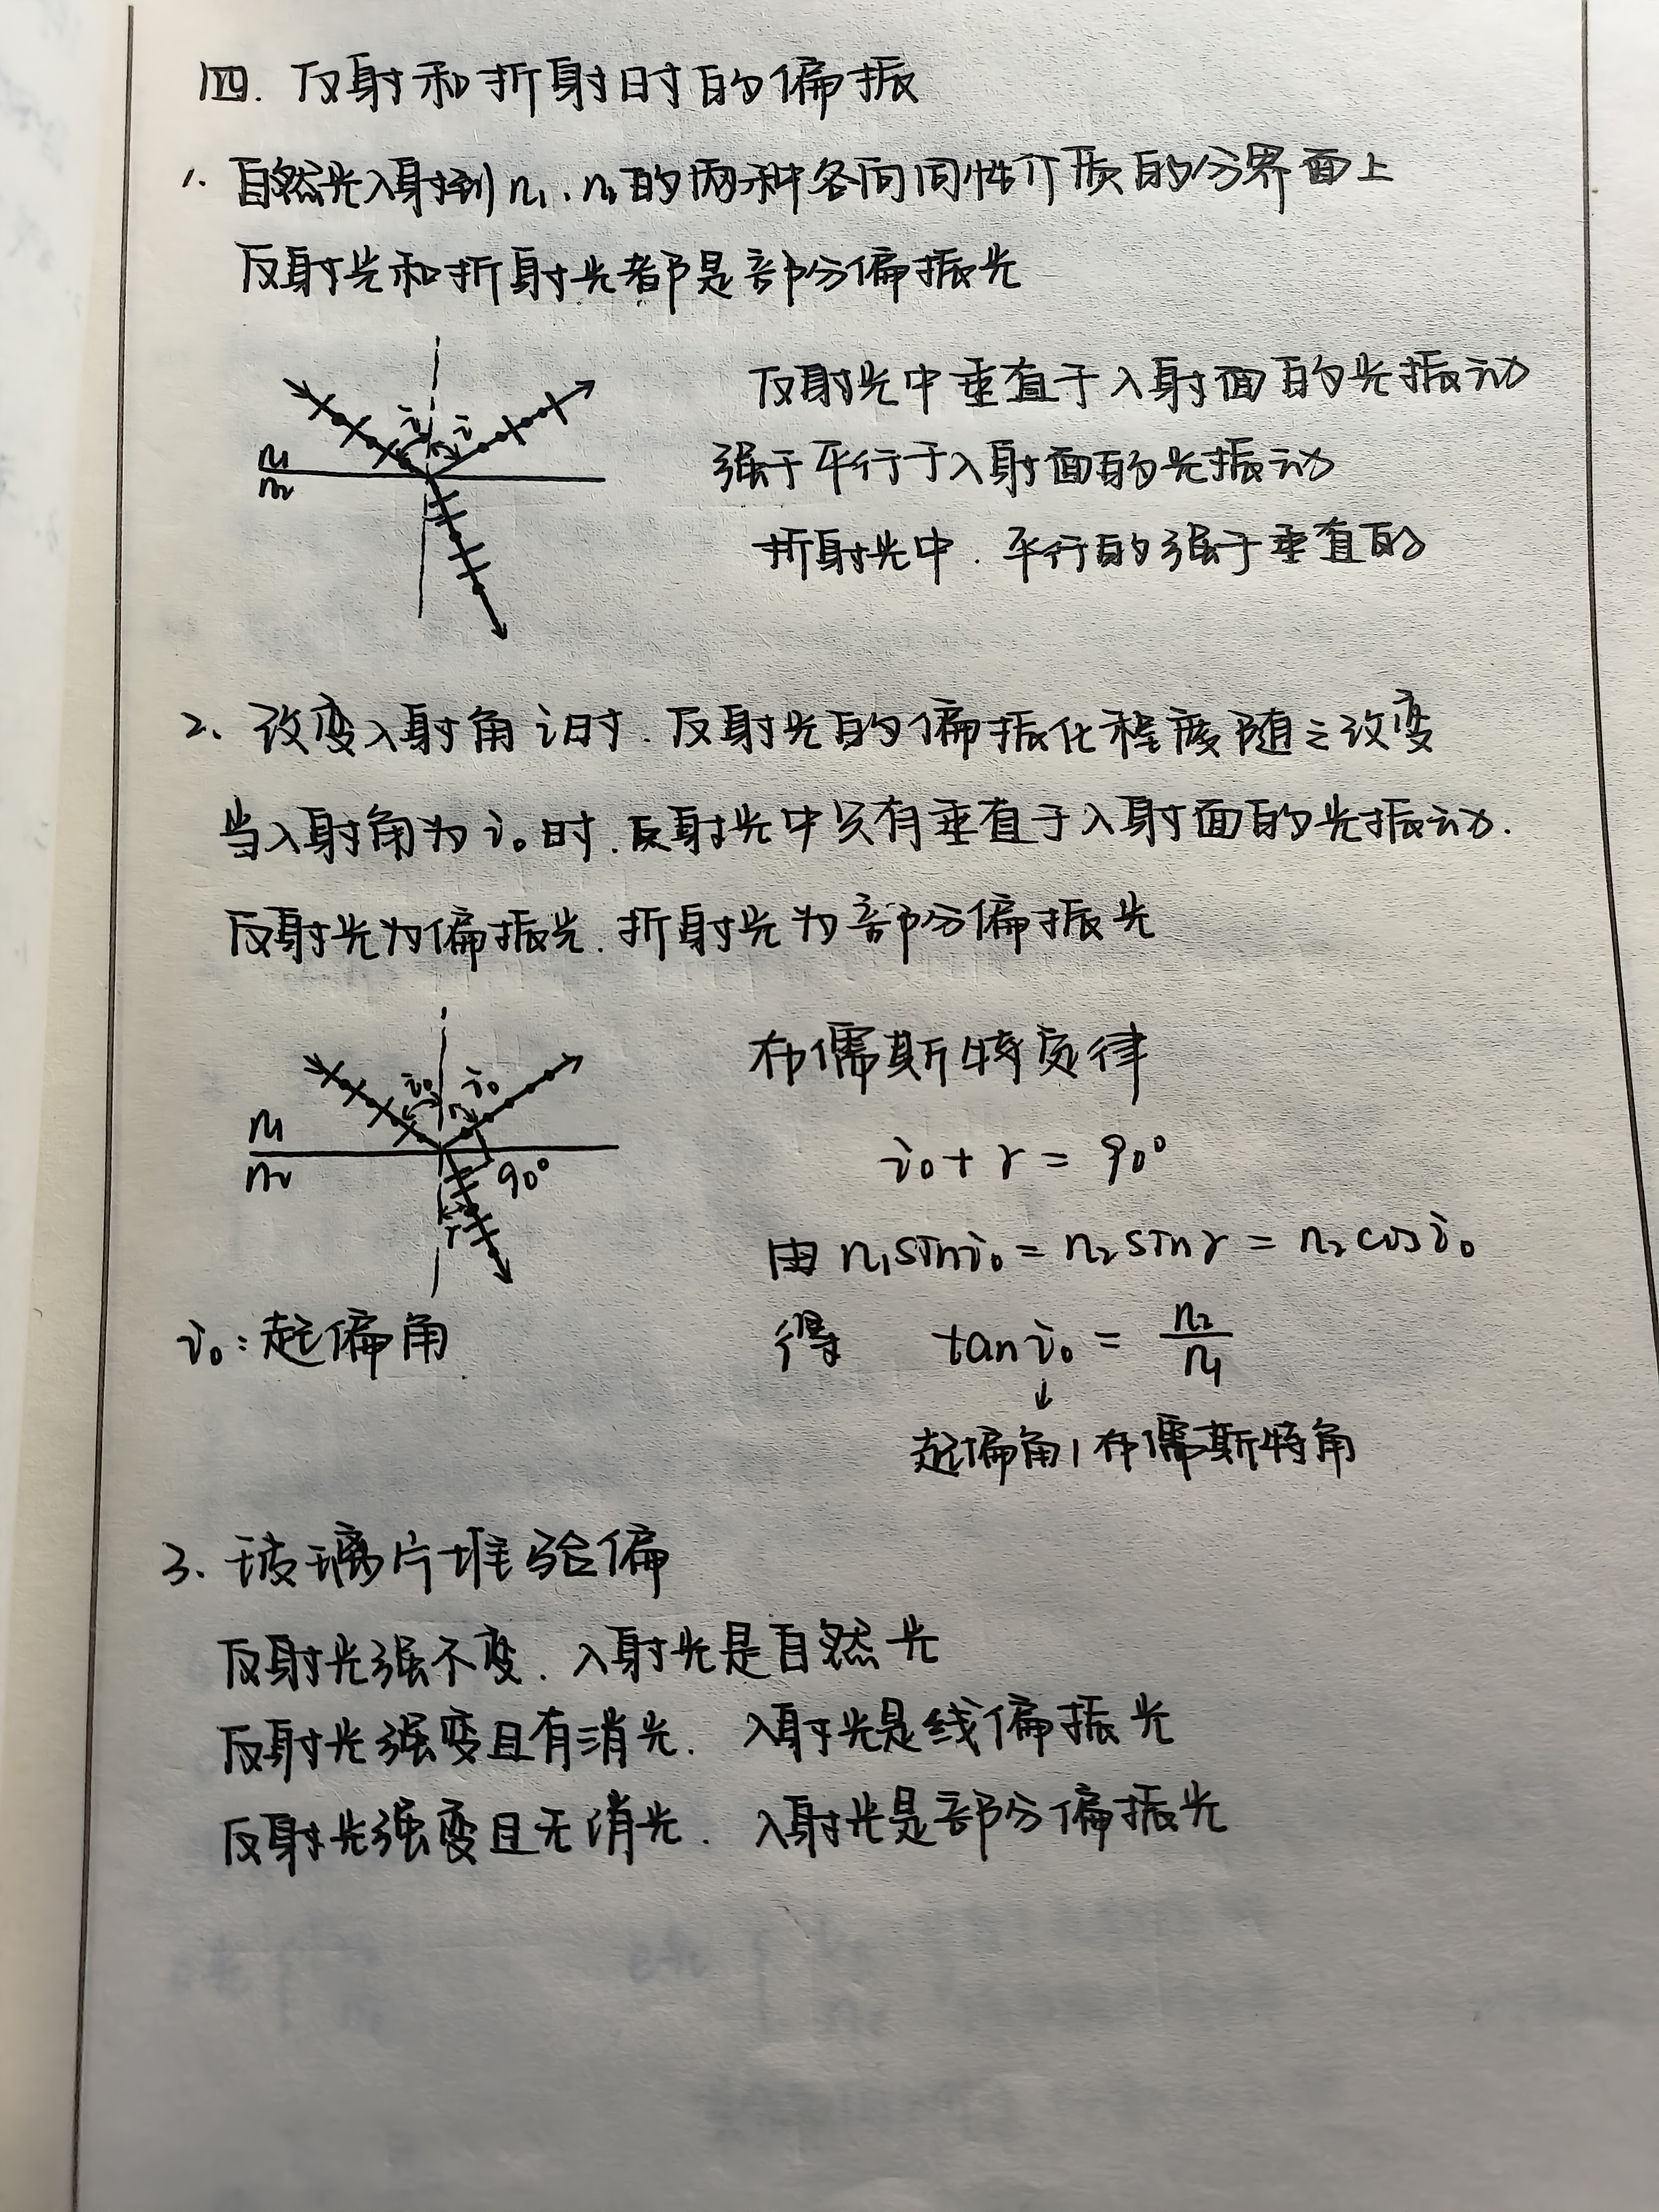 四. 反射和折射时的偏振
1. 自然光入射到 n₁、n₂的两种各向同性介质的分界面上
反射光和折射光都是部分偏振光
i i
n₁
n₂
反射光中垂直于入射面的光振动
强于平行于入射面的光振动
折射光中. 平行的强于垂直的
2. 改变入射角 i时. 反射光的偏振化程度随之改变
当入射角为 i₀时. 反射光中只有垂直于入射面的光振动.
反射光为偏振光. 折射光为部分偏振光
i₀ i₀
n₁
n₂
90°
r
i₀:起偏角
布儒斯特定律
i₀ + r = 90°
由 n₁sini₀ = n₂sinr = n₂cosi₀
得 tani₀ = n₂/n₁
↓
起偏角/布儒斯特角
3. 玻璃片堆验偏
反射光强不变. 入射光是自然光
反射光强变且有消光. 入射光是线偏振光
反射光强变且无消光. 入射光是部分偏振光